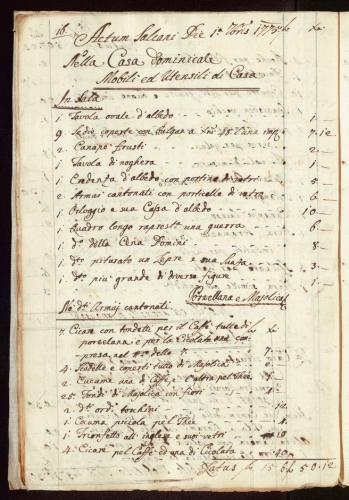 16. Actum Salcani Die 1ª 7bris 1775
Nella Casa dominicale
Mobili ed Utensili di Casa
In Sala
1 Tavola ovale d'albedo 1
9 Sedie coperte con bulgar a 15 l'una imp 7.12
2 Canapè frusti 2
1 Tavola di noghera 1
1 Credenza d'albedo con portine di vetri 5
2 Armaj cantonali con porticelle di vetro 6
1 Orloggio e sua Cassa d'albedo 10
1 Quadro longo rapreste una guerra 6
1 do della Cena Domini 8
1 dto piturato un Lepre e sua 3
1 dto piu grande di diverse figure 1
Porzellana e Majolica
Ne di Armaj cantonali
7. Cicare con tondetti per il Caffè tutte di
porzelana, e per la Cicolata una com-
presa nel No delle 7 7
4. Scudelle e coperti tutto di Majolica 2
2 Cucume una di Caffè, e l'altra per Thee
25. Tondi di Majolica con fiori 4
2 dti ordi tonchini 12
1 Cucuma picola per Thee 4
1 Trionfetto all'inglese e suoi vetri 10
4 Cicare per Caffè ed una di Cicolata 40
Latus f 15.6 f 50.12